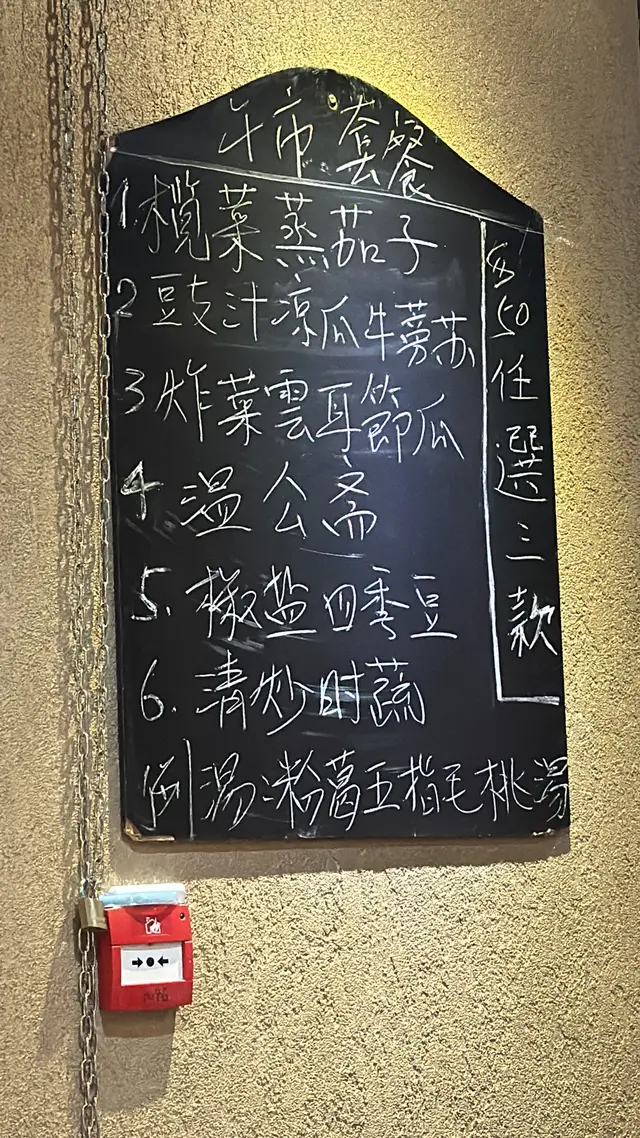 午市套餐
1.欖菜蒸茄子
2 豆豉汁凉瓜牛蒡苏
3 炸菜雲耳節瓜
4 温公斋
5. 椒盐四季豆
6. 清炒时蔬
例湯:粉葛五指毛桃湯
50任選三款